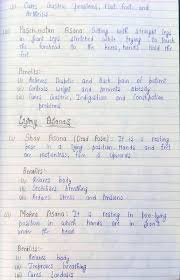 (iii) Cures Gastric problems, Flat feet and
Arthritis
(ii) Paschimottan Asana: Sitting with straight legs
in front legs stretched while trying to touch
the forehead to the knees, hands hold the
feet
Benefits:
(i) Relieves Diabetic and Back pain of patient
(ii) Controls weight and prevents obesity
(iii) Cures Gastric, Indigestion and Constipation
problems
Lying Asanas
(i) Shav Asana (Dead Pose): It is a resting
pose in a lying position. Hands and feet
on
upwards
Benefits:
(i) Relaxes body
(ii) Stabilises breathing
(iii) Reduces stress and tensions
(ii) Makra Asana: It is resting in pro-lying
position in which hands are in front
under the head
Benefits:
(i) Relaxes body
(ii) Improves breathing
(iii) Cures